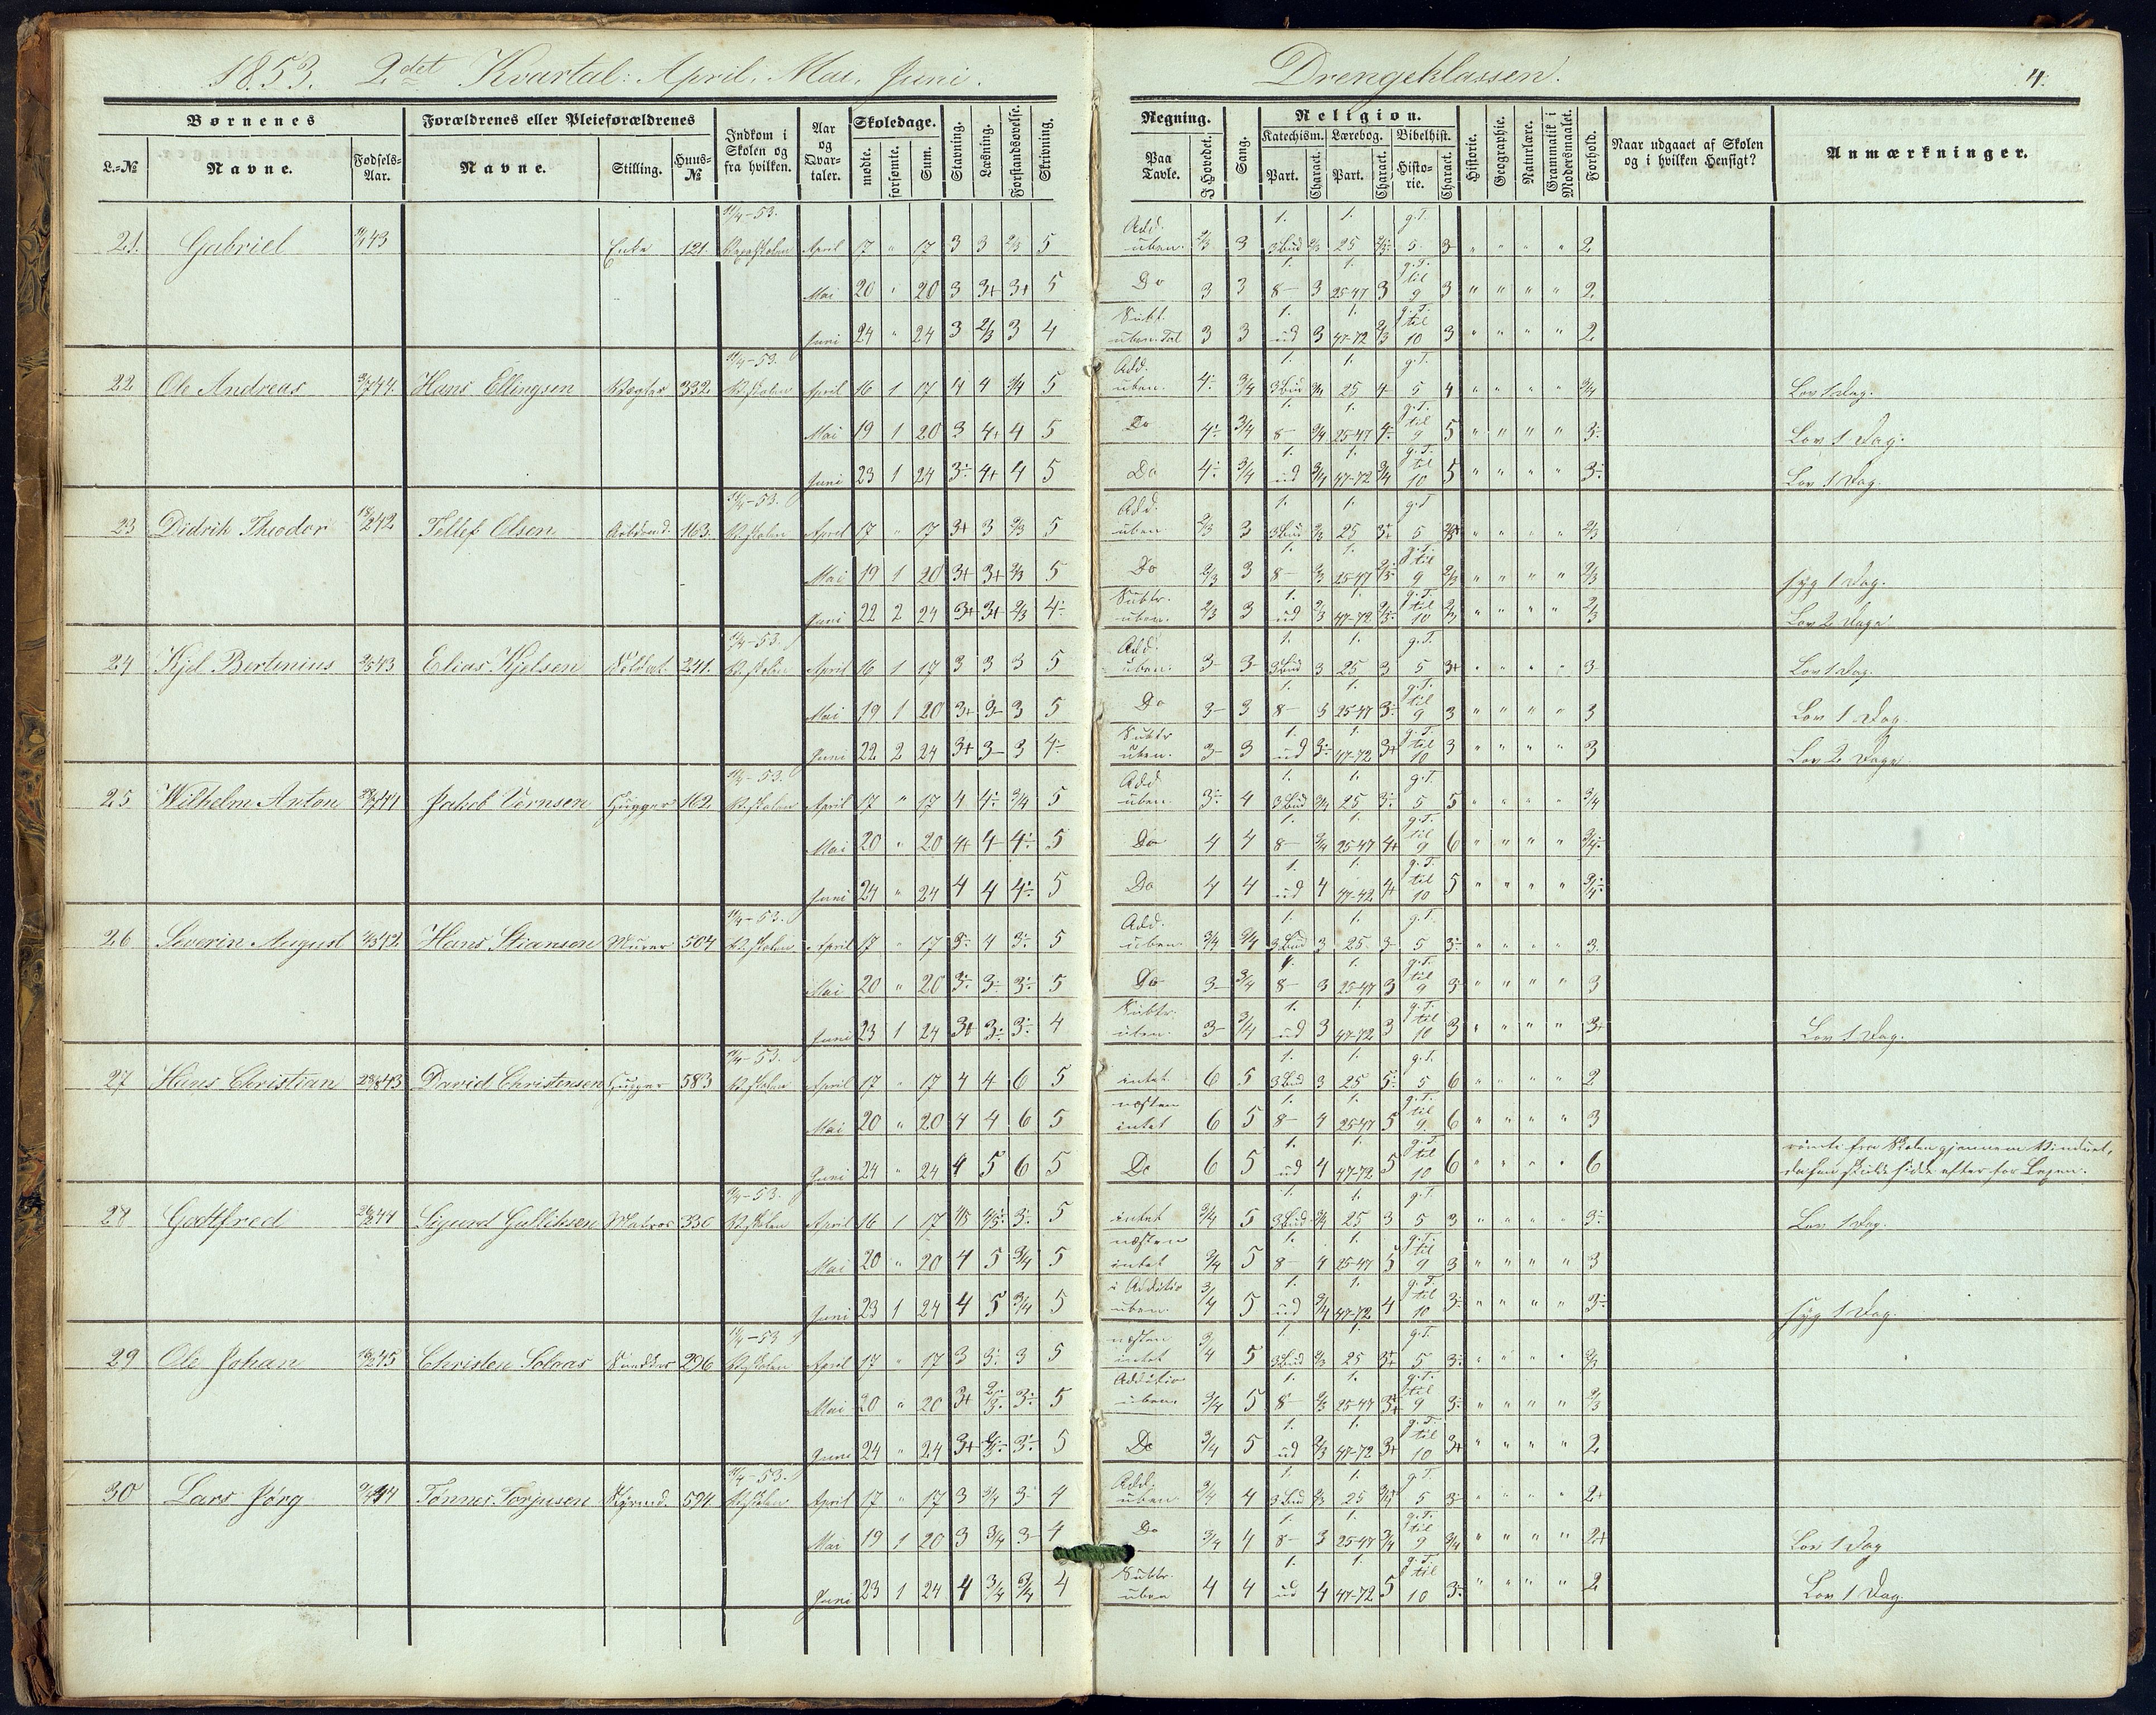 1853. 2det Kvartal: April, Mai, Juni.
Drengeklassen.
4.
Børnenes
Forældrenes eller Pleieforældrenes
Indkom i Skolen og fra hvilken.
Aar og Qvartaler.
Skoledage.
Stavning.
Læsning.
Forstandsøvelse.
Skrivning.
L.-№
Navne.
Fødsels-Aar.
Navne.
Stilling.
Huus-№
mødte.
forsømte.
Sum.
Regning.
Paa Tavle.
I Hovedet.
Sang.
Religion.
Katechism.
Lærebog.
Bibelhist.
Part.
Charact.
Part.
Charact.
Historie.
Charact.
Historie.
Geographie.
Naturlære.
Grammatik i Modersmaalet.
Forhold.
Naar udgaaet af Skolen og i hvilken Hensigt?
Anmærkninger.
21. Gabriel Enke 121. 11/4-53. April 17 " 17 3 3 2/3 5 Add. uben. 2/3 3 3 Bud 2/3 1. 25 g.T. 5 3 " " " " 2
Mai 20 " 20 3 3+ 3+ 5 Do 3 3 1. 8- 3 1. 25-47 3 g.T. til 9 3 " " " " 2
Juni 24 " 24 3 2/3 3 4 Subt. 3 3 1. ud 3 1. 47-72 2/3 g.T. til 10 3 " " " " 2
22 Ole Andreas Hans Ellingsen 332 11/4-53. April 16 1 17 4 4 3/4 5 Add. uben. 4÷ 3/4 1. 3 Bud 3/4 1. 25 4 g.T. 5 4 " " " " 3/4 Lov 1 Dag.
Mai 19 1 20 3 4+ 4 5 Do 4÷ 3/4 1. 8- 3/4 1. 25-47 4÷ g.T. til 9 5 " " " " 3÷ Lov 1 Dag.
Juni 23 1 24 3÷ 4+ 4 5 Do 4÷ 3/4 1. ud 3/4 1. 47-72 3/4 g.T. til 10 5 " " " " 3÷ Lov 1 Dag.
23 Didrik Theodor Tellef Olsen Arbdsmd. 163. 11/4-53. April 17 " 17 3+ 3 2/3 5 Add. uben 2/3 3 1. 3 Bud 2/3 1. 25 3+ g.T 5 " " " " 2/3
Mai 19 1 20 3+ 3+ 2/3 5 Do 2/3 3 1. 8- 2/3 1. 25-47 g.T. til 9 2/3 " " " " 2/3 syg 1 Dag.
Juni 22 2 24 3+ 3+ 2/3 4÷ Subtr. uben. 2/3 3 1. ud 2/3 1. 47-72 g.T. til 10 2/3 " " " " 2/3 Lov 2 Dage
24 Kjel Bertinius Elias Kjelsen Soldat 241. 11/4-53. April 16 1 17 3 3 3 5 Add. uben. 3- 3- 1. 3 Bud 3 1. 25 3 g.T. 5 3+ " " " " 3 Lov 1 Dag.
Mai 19 1 20 3+ 3- 3 5 Do 3- 3 1. 8- 3 1. 25-47 3÷ g.T. til 9 3 " " " " 3 Lov 1 Dag.
Juni 22 2 24 3+ 3- 3 4÷ Subtr uben. 3- 3 1. ud 3÷ 1. 47-72 3+ g.T. til 10 3 " " " " 3 Lov 2 Dage
25 Wilhelm Anton Jakob Vernsen Hugger 162 11/4-53. April 17 " 17 4 4÷ 3/4 5 Add uben. 3÷ 4 1. 3 Bud 3/4 1. 25 3÷ g.T. 5 5 " " " " 3/4
Mai 20 " 20 4+ 4 4÷ 5 Do 4 4 1. 8- 3/4 1. 25-47 4+ g.T. til 9 6 " " " " 3/4÷
Juni 24 " 24 4 4 4÷ 5 Do 4 4 1. ud 4 1. 47-42 4+ g.T. til 10 5 " " " " 3/4÷
26 Severin August Hans Stiansen Murer 504 11/4-53. April 17 " 17 3÷ 4 3÷ 5 Add. uben. 3/4 3/4 1. 3 Bud 3 1. 25 3 g.T. 5 3÷ " " " " 3.
Mai 20 " 20 3÷ 3÷ 3÷ 5 Do 3- 3/4 1. 8- 3 1. 25-47 3 g.T. til 9 3 " " " " 3
Juni 23 1 24 3+ 3÷ 3÷ 4 Subtr. uben. 3- 3/4 1. ud 3 1. 47-72 3 g.T. til 10 3 " " " " 3+ Lov 1 Dag.
27 Hans Christian David Christensen Hugger 583 11/4-53. April 17 " 17 4 4 6 5 intet 6 5 1. 3 Bud 3 1. 25 5÷ g.T. 5 6 " " " " 2
Mai 20 " 20 4 4 6 5 næsten intet 6 5 1. 8- 4 1. 25-47 5 g.T. til 9. 6 " " " " 3
Juni 24 " 24 4 5 6 5 Do 6 5 1. ud 4 1. 47-72 5 g.T. til 10 6 " " " " 6 rømte fra Skolen gjennem Vinduet,
da han skulde sidde efter for Lexen.
28 Godtfred Sigurd Gulliksen Matros 336 11/4-53. April 16 1 17 4/5 4/5÷ 3÷ 5 intet 3/4 5 1. 3 Bud 3/4 1. 25 3 g.T. 5 3 " " " " 3÷ Lov 1 Dag.
Mai 20 " 20 4 5 3/4 5 næsten intet 3/4 5 1. 8- 4 1. 25-47 5 g.T. til 9 3 " " " " 3
Juni 23 1 24 4 5 3/4 5 i Additio uben. 3/4 5 1. ud 3/4 1. 47-72 4 g.T. til 10 3÷ " " " " 3÷ syg 1 Dag.
29 Ole Johan Christen Solaas Snedker 296 11/4-53 April 17 " 17 3 3÷ 3 5 næsten intet 3/4 5 1. 3 Bud 2/3 1. 25 3+ g.T. 5 3÷ " " " " 2/3
Mai 20 " 20 3+ 2/3÷ 3÷ 5 Additio uben. 3/4 5 1. 8- 2/3 1. 25-47 3+ g.T. til 9 3÷ " " " " 2/3
Juni 24 " 24 3+ 2/3÷ 3÷ 5 Do 3/4 5 1. ud 2/3 1. 47-72 3+ g.T. til 10 3+ " " " " 2
30 Lars Jørg Tønnes Torjusen 594. 11/4-53. April 17 " 17 3 3/4 3 4 Add. uben 3/4 4 1. 3 Bud 2/3 1. 25 3/4 g.T. 5 3 " " " " 2+
Mai 19 1 20 3 3/4 3- 4 Do 3/4 4 1. 8- 3 1. 25-47 3/4 g.T. til 9 3/4 " " " " 2+ Lov 1 Dag
Juni 23 1 24 4 3/4 3/4 4 Subtr. uben 4 4 1. ud 4 1. 47-72 5 g.T. til 10 3÷ " " " " 2 Lov 1 Dag.